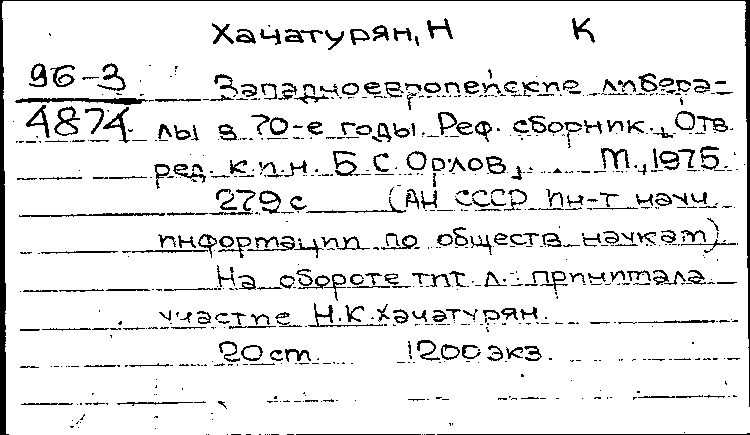 Хачатурян, Н К
96-3 Западноевропейские либера-
4874 лы в 70-е годы. Реф. сборник. Отв.
ред. к.и.н. Б.С. Орлов, М., 1975.
279 с (АН СССР Ин-т научн.
информации по обществ. наукам)
На обороте тит. л.: принимала
участие Н.К. Хачатурян.
20 см 1200 экз.